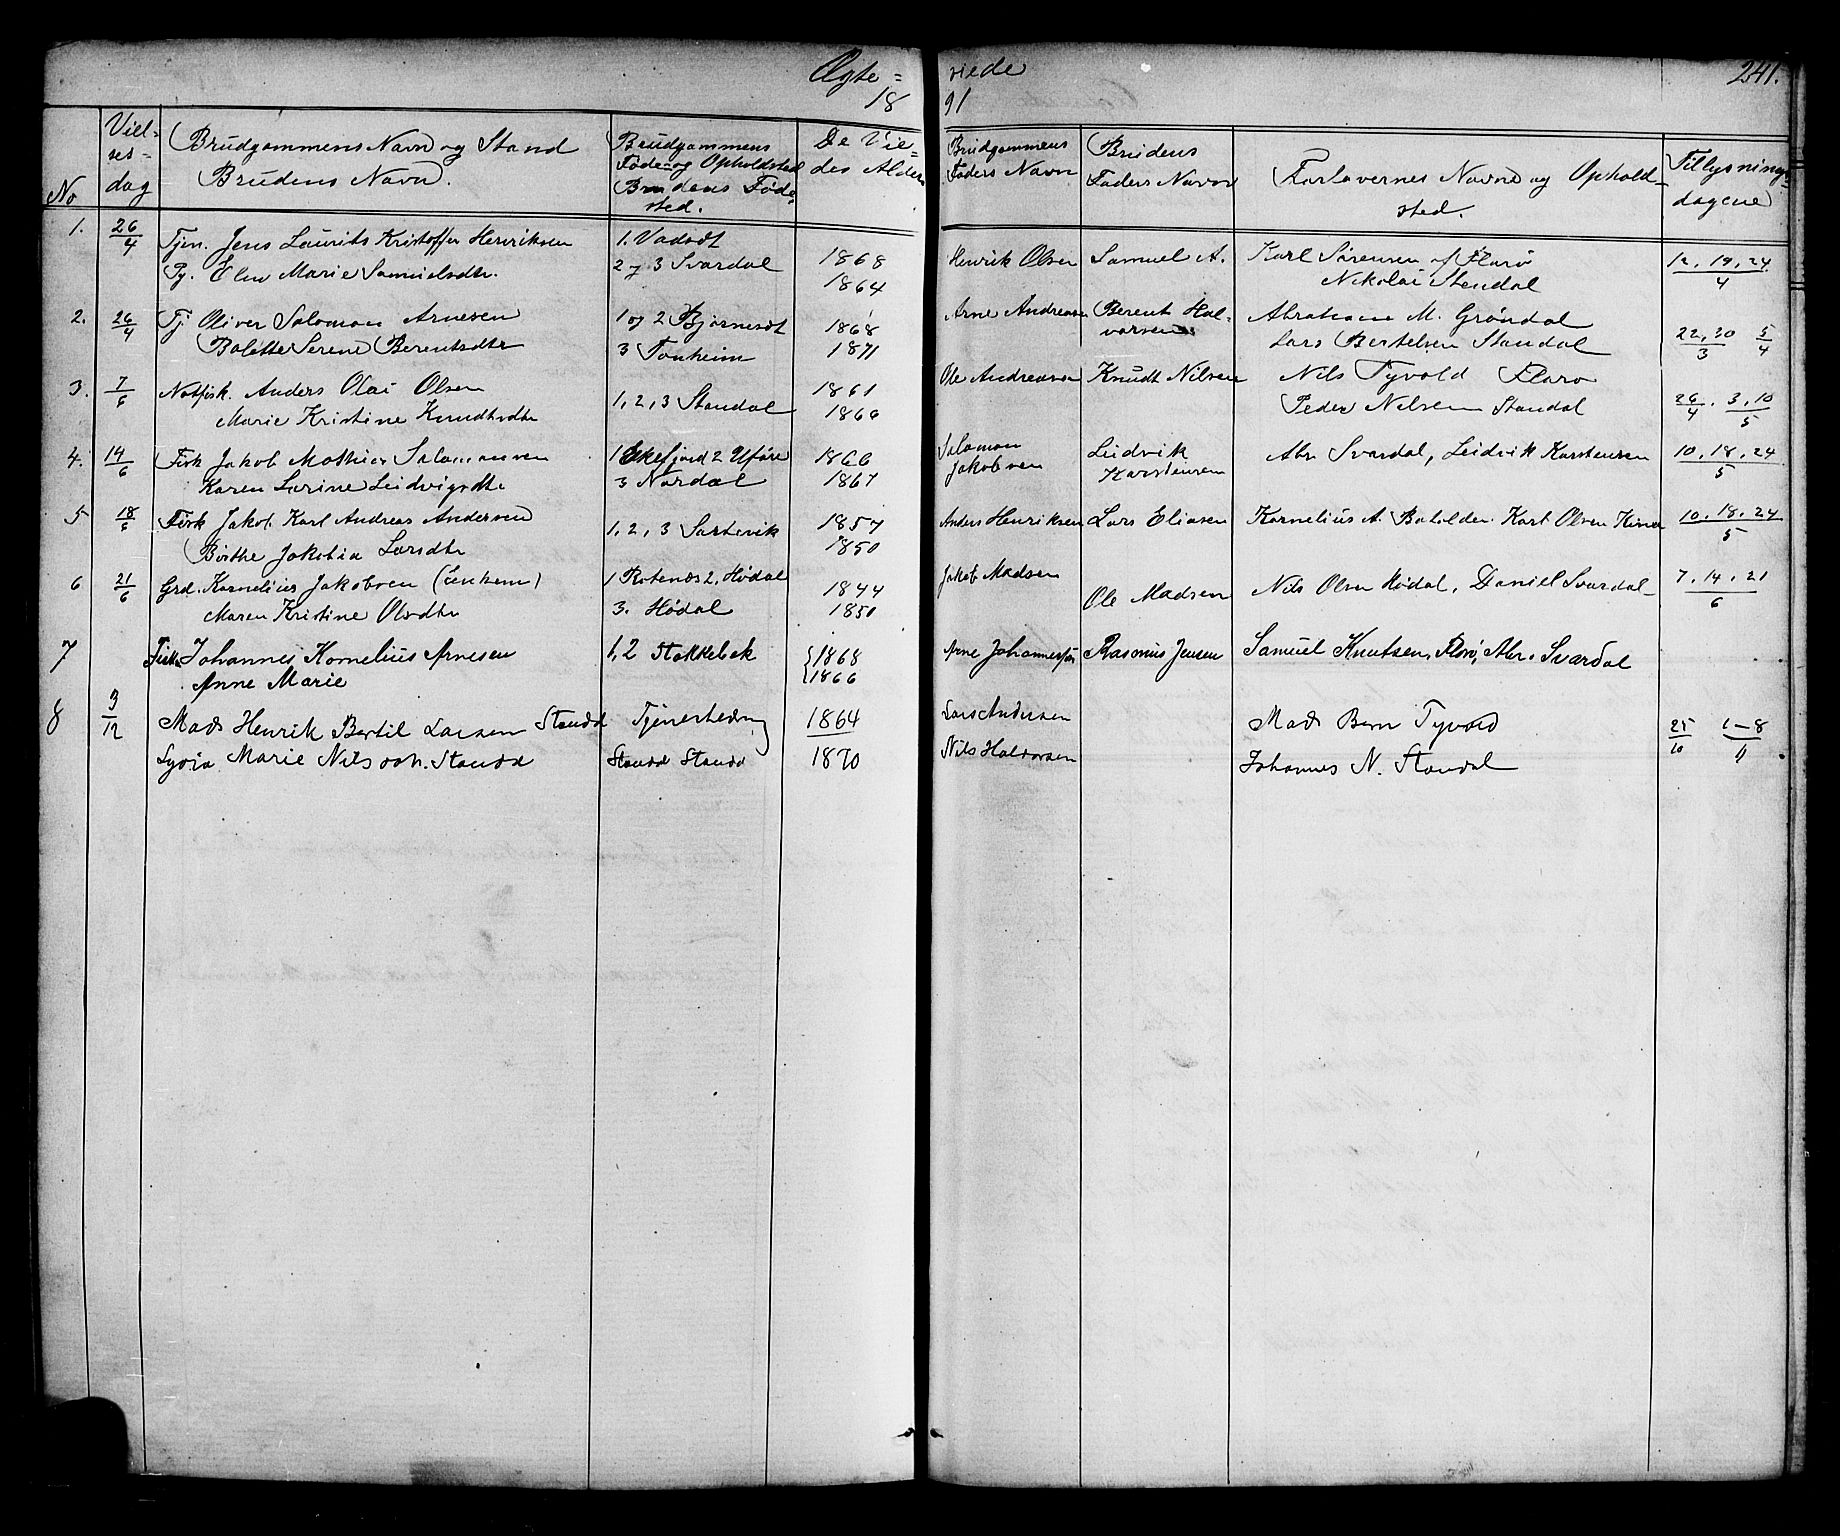 Ægte= viede 241.
18 91
No
Viel=
ses=
dag
Brudgommens Navn og Stand
Brudens Navn.
Brudgommens
Føde= og Opholdsted
Brudens Føde
sted.
De Vie=
des Alder
Brudgommens
Faders Navn
Brudens
Faders Navn
Forlovernes Navne og Ophold=
sted.
Tillysnings=
dagene
1. 26/4 Tjen. Jens Laurits Kristoffer Henriksen 1. Vadsdt 1868 Henrik Olsen Samuel A. Karl Sørensen af Florø 12. 19. 24/4
Pg. Elen Marie Samuelsdtr. 2 og 3 Svardal 1864 Nikolai Standal
2. 26/4 Tj Oliver Salomon Arnesen 1 og 2 Bjørnesdt 1868 Arne Andreasen Berent Hal= Abraham M. Grøndal
Bolette Serene Berentsdtr 3 Tonheim 1871 vorsen Lars Bertelsen Standal 22, 30/3 5/4
3. 7/6 Notfisk. Anders Olai Olsen 1, 2, 3 Standal 1861 Ole Andreassen Knudt Nilsen Nils Tyvold Florø
Marie Kristine Knudtsdtr 1866 Peder Nilsen Standal 26/4. 3. 10/5
4. 14/6 Fisk Jakob Mathias Salomonsen 1 Ekefjord 2 Uføre 1866 Salomon Jakobsen Ludvik Karstensen Abr Svardal, Ludvik Karstensen 10. 18. 24/5
Karen Larine Ludvigsdtr 3 Nordal 1867
5 18/6 Fisk Jakob Karl Andreas Andersen 1, 2, 3 Sartevik 1857 Anders Henriksen Lars Eliasen Kornelius A. Batalden. Karl Olsen Kinn 10. 18. 24/5
Birthe Jakobia Larsdtr 1850
6 21/6 Grd. Kornelius Jakobsen (Enkem) 1 Rotenæs 2. Hødal 1844 Jakob Madsen Ole Madsen Nils Olsen Hødal, Daniel Svardal 7. 14. 21/6
Maren Kristine Olsdtr 3. Hødal 1850
7 Fisk. Johannes Kornelius Arnesen 1, 2 Stokkebek 1868 Arne Johannessøn Rasmus Jensen Samuel Knutsen, Florø, Abr. Svardal
Anne Marie 1866
8 3/12 Mads Henrik Bertil Larsen Standal Tjenestedreng 1864 Lars Andersen Mads Bern Tyvold 25/10 1–8/11
Marie Nilsdtr. Standal Standal Standal 1870 Nils Halvorsen Johannes N. Standal